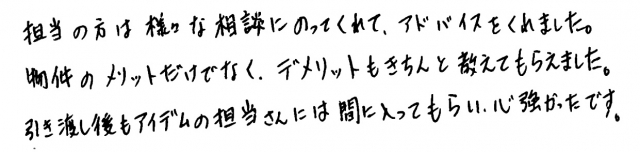 担当の方は様々な相談にのってくれて、アドバイスをくれました。
物件のメリットだけでなく、デメリットもきちんと教えてもらえました。
引き渡し後もアイデムの担当さんには間に入ってもらい、心強かったです。